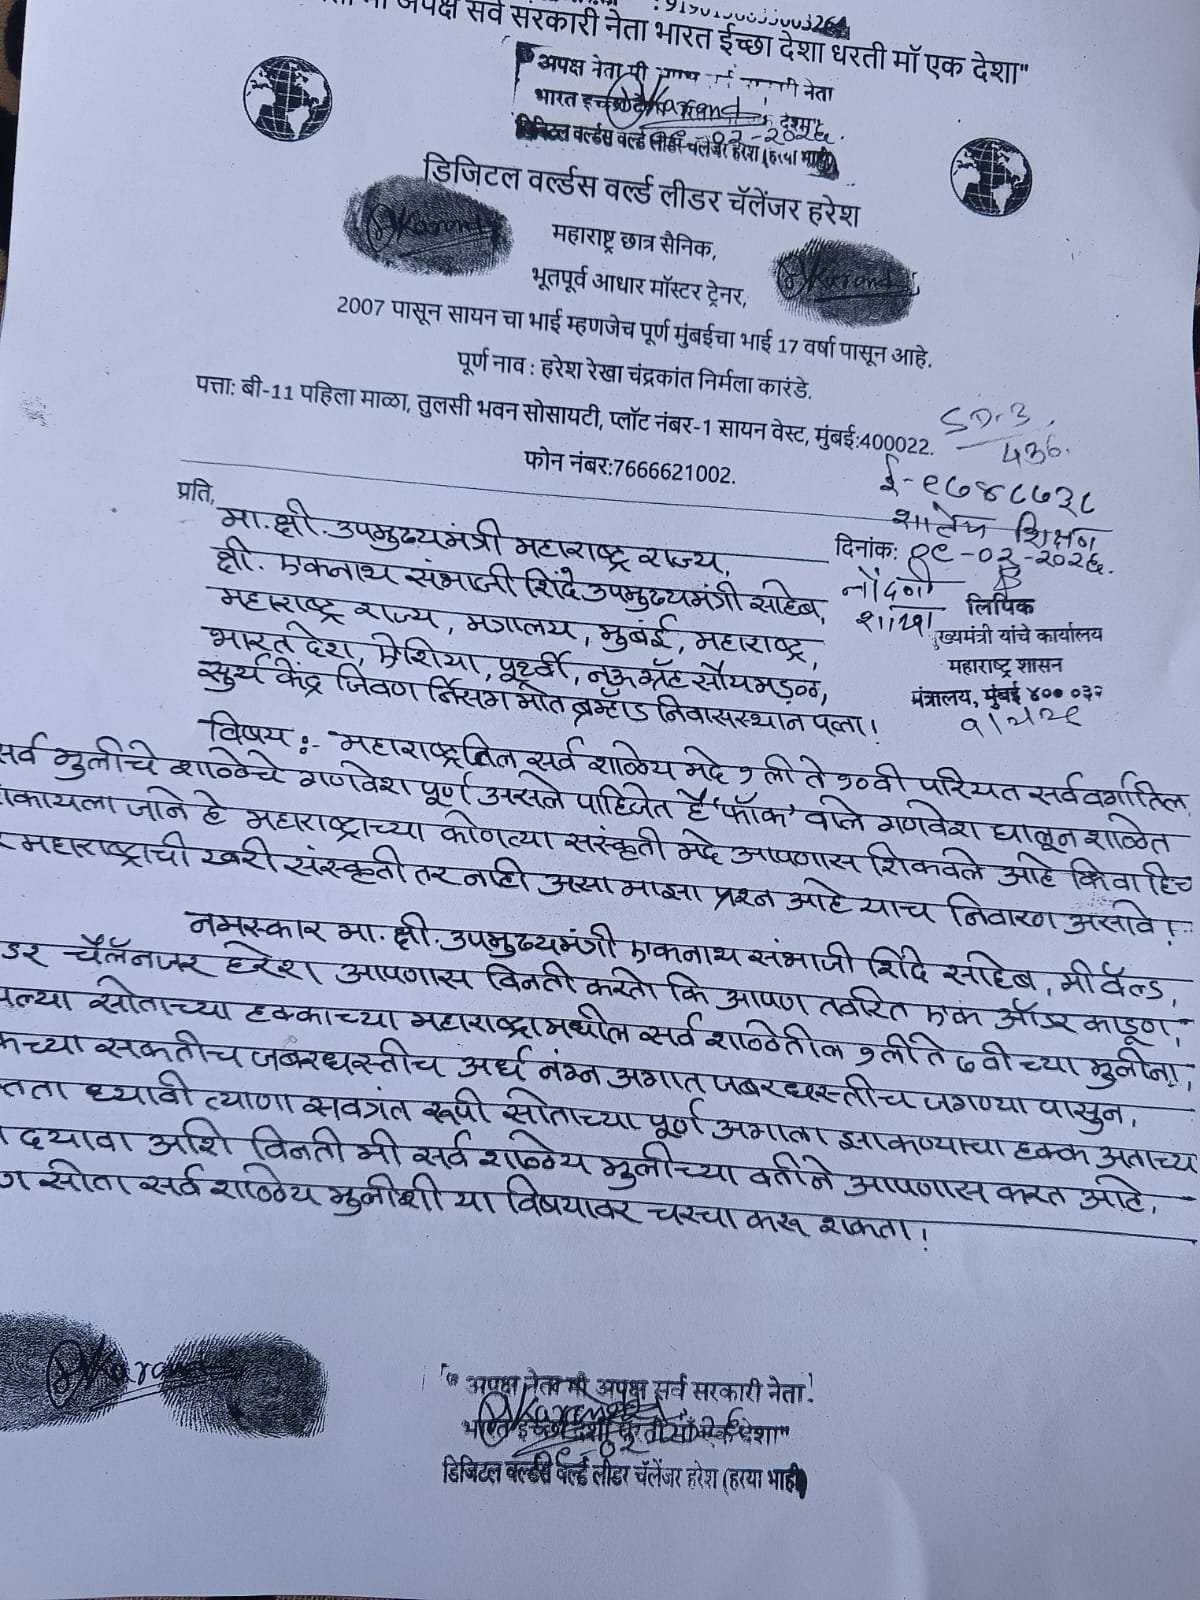 अपक्ष सर्व सरकारी नेता भारत ईच्छा देशा धरती माँ एक देशा"
अपक्ष नेता मी नेता
भारत
डिजिटल वर्ल्डस वर्ल्ड लीडर चॅलेंजर हरेश (हरया भाही)
डिजिटल वर्ल्डस वर्ल्ड लीडर चॅलेंजर हरेश
महाराष्ट्र छात्र सैनिक,
भूतपूर्व आधार मॉस्टर ट्रेनर,
2007 पासून सायन चा भाई म्हणजेच पूर्ण मुंबईचा भाई 17 वर्षा पासून आहे.
पूर्ण नाव : हरेश रेखा चंद्रकांत निर्मला कारंडे.
पत्ता: बी-11 पहिला माळा, तुलसी भवन सोसायटी, प्लॉट नंबर-1 सायन वेस्ट, मुंबई:400022.
फोन नंबर:7666621002.
ई-९७४८७३८
शालेय शिक्षण
प्रति,
दिनांक: १९-०२-२०२६.
नोंदणी
शाखा
लिपिक
ख्यमंत्री यांचे कार्यालय
महाराष्ट्र शासन
मंत्रालय, मुंबई ४०० ०३२
मा.श्री.उपमुख्यमंत्री महाराष्ट्र राज्य,
श्री. एकनाथ संभाजी शिंदे उपमुख्यमंत्री साहेब,
महाराष्ट्र राज्य, मंत्रालय, मुबंई, महाराष्ट्र,
भारत देश, ऐशिया, पृथ्वी, नऊग्रॅह सौयमडळ,
सुर्य केंद्र जिवण र्निसग मोत ब्रम्हॉड निवासस्थान पत्ता!
विषय :- महाराष्ट्रतिल सर्व शाळेय मदे १ ली ते १०वी परियत सर्व वर्गातिल
सर्व मुलीचे शाळेचे गणवेश पूर्ण असले पाहिजेत हे 'फॉक' वाले गणवेश घालून शाळेत
शिकायला जाने हे महाराष्ट्राच्या कोणत्या संस्कृती मदे आपणास शिकवले आहे किवा हिच
महाराष्ट्राची खरी संस्कृती तर नाही असा माझा प्रश्न आहे याच निवारण असावे!
नमस्कार मा.श्री.उपमुख्यमंत्री एकनाथ संभाजी शिंदे साहेब, मी वॅल्ड,
डर चॅलॅनजर हरेश आपणास विनती करतो कि आपण तवरित एक ऑडर काडूण,
सोताच्या हक्काच्या महाराष्ट्रामधील सर्व शाळेतील १ली ते ७वी च्या मुलीना,
सकतीच जबरधस्तीच अर्ध नंग्न अगात जबरधस्तीच जगण्या पासुन,
ध्यावी त्याणा सवत्रंत रूपी सोताच्या पूर्ण अगाला झाकण्याचा हक्क अताच्या
दयावा अशि विनती मी सर्व शाळेय मुलीच्या वतीने आपणास करत आहे,
सोता सर्व शाळेय मुलीशी या विषयावर चरचा करू शकता!
"अपक्ष नेता मी अपक्ष सर्व सरकारी नेता!
डिजिटल वर्ल्डस वर्ल्ड लीडर चॅलेंजर हरेश (हरया भाही)